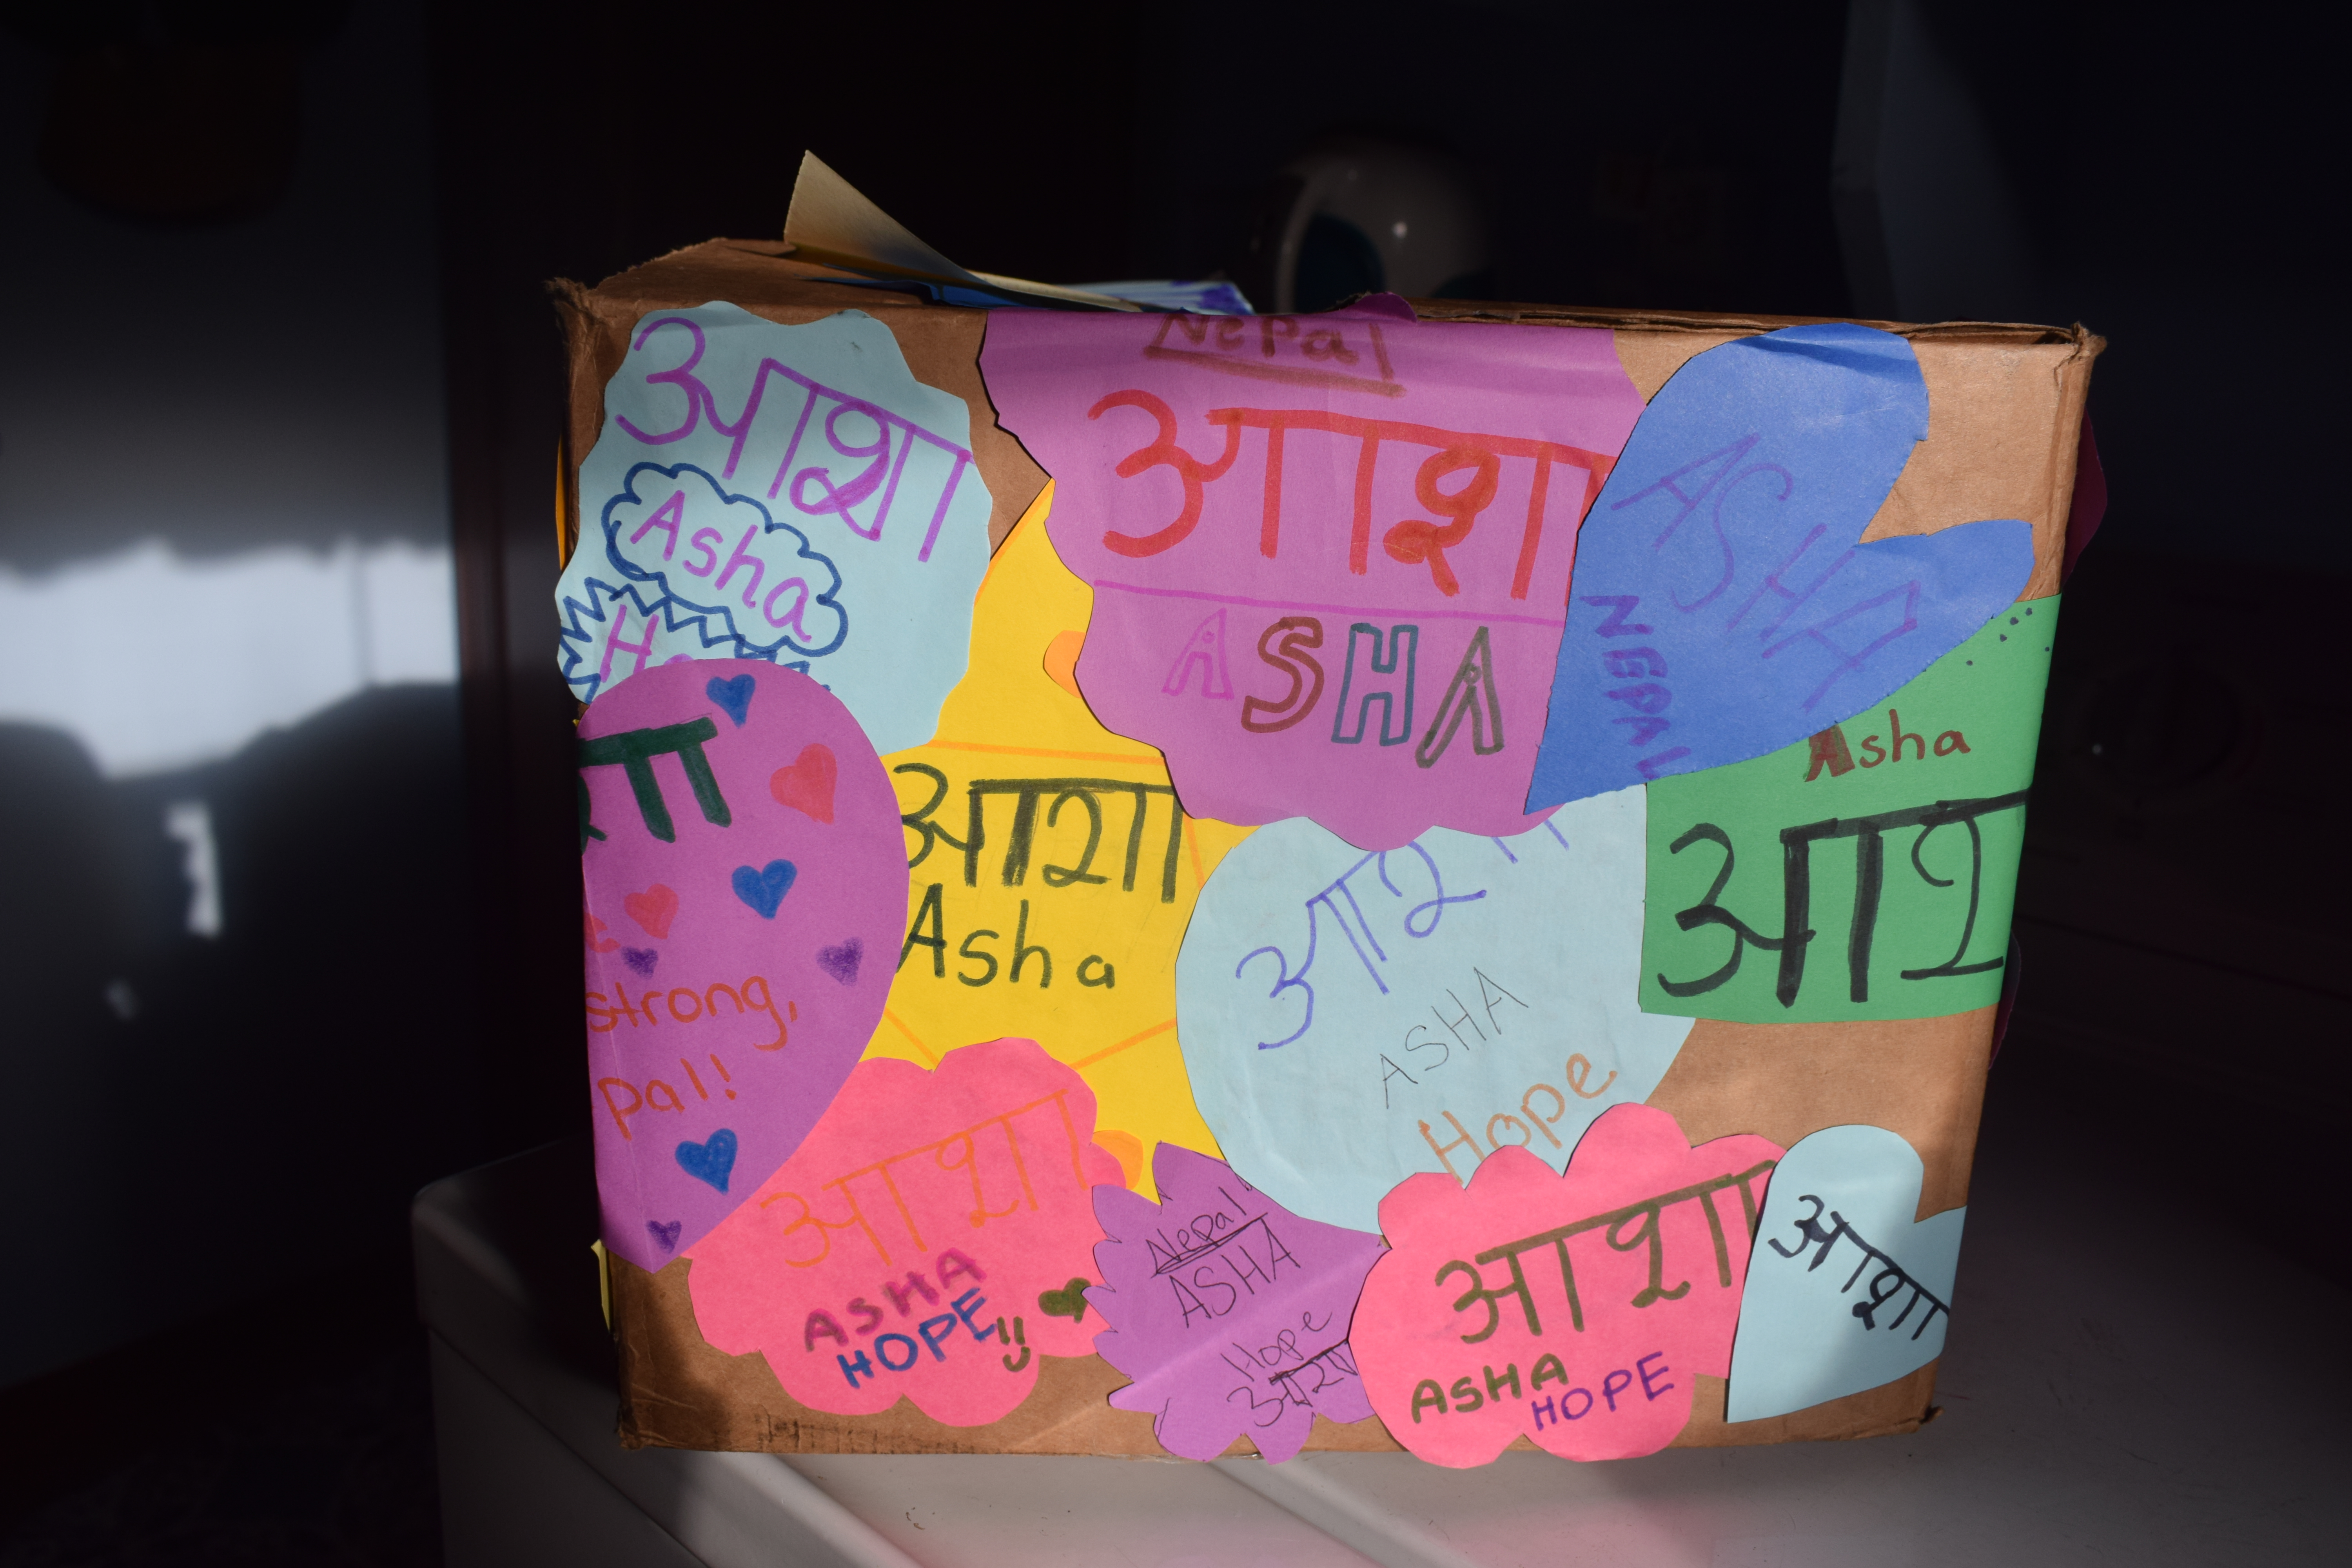 आशा
Asha
Nepal
आशा
ASHA
ASHA
NEPAL
Asha
strong,
pal!
आशा
Asha
आशा
ASHA
Hope
आशा
ASHA
HOPE
Nepal
ASHA
Hope
आशा
आशा
ASHA
HOPE
आशा